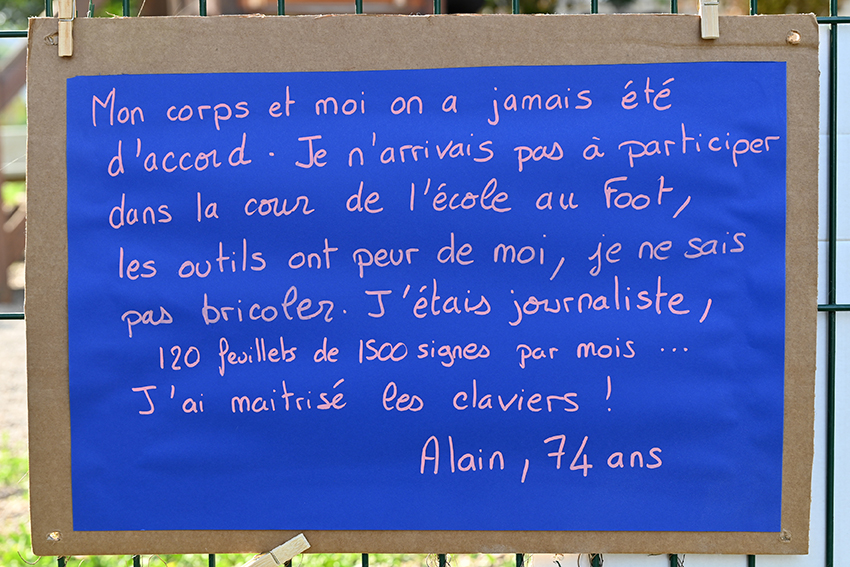 Mon corps et moi on a jamais été
d'accord. Je n'arrivais pas à participer
dans la cour de l'école au Foot,
les outils ont peur de moi, je ne sais
pas bricoler. J'étais journaliste,
120 feuillets de 1500 signes par mois ...
J'ai maitrisé les claviers !
Alain, 74 ans